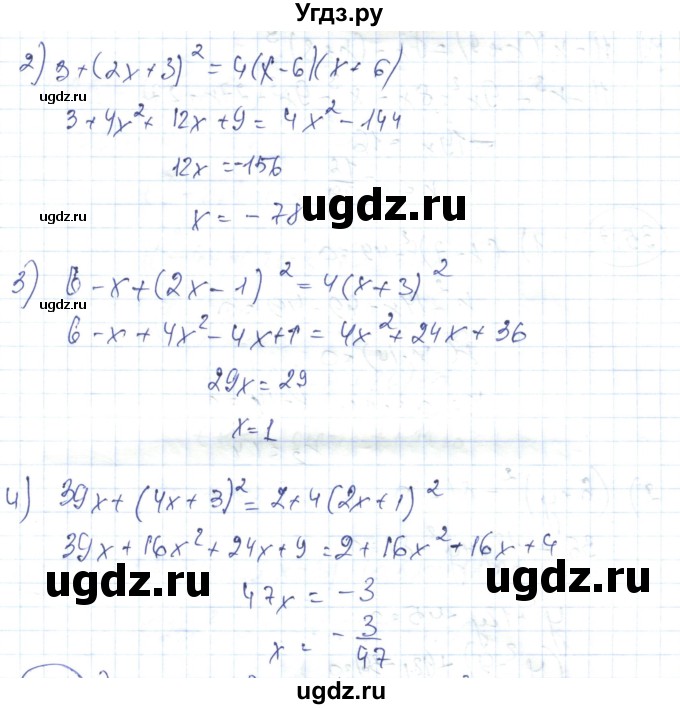 Угдз.ру
2) 3+(2x+3)²=4(x-6)(x+6)
ugdz.ru
3+4x²+12x+9=4x²-144
12x=-156
ugdz.ru
x=-78
ugdz.ru
3) 6-x+(2x-1)²=4(x+3)²
ugdz.ru
6-x+4x²-4x+1=4x²+24x+36
29x=29
x=1
4) 39x+(4x+3)²=2+4(2x+1)²
39x+16x²+24x+9=2+16x²+16x+4
ugdz.ru
ugdz.ru
47x=-3
x=-3/47
ugdz.ru